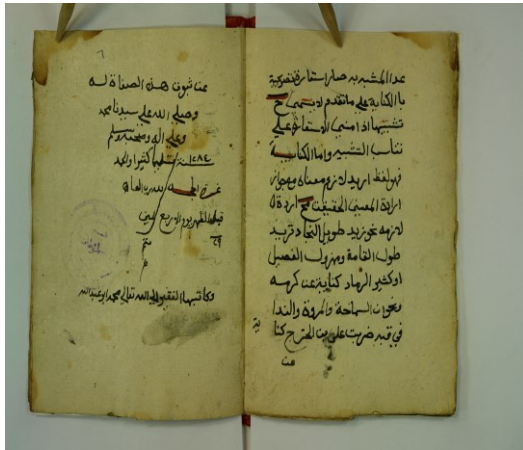 عدا المشبه به صار استعارة
با الكناية على ما تقدم لا يسمى ح
تشبيها اذا مبنى الاستعارة على
تناسي التشبيه واما الكناية
فهو لفظ اريد لازم معناه مع جواز
ارادة المعنى الحقيقي مع ارادة
لازمه نحو زيد طويل النجاد تريد
طول القامة ومهزول الفصيل
او كثير الرماد كناية عن كرمه
ونحو ان السماحة والمروة والندا
في قبه ضربت على بن الحشرج كنا
ية
عن
عن ثبوت هذه الصفاة له
وصلى الله على سيدنا محمد
وعلى اله وصحبه وسلم
تسليما كثيرا والحمد
لله رب
الظهر يوم الاربع
وكاتبها الفقير الى الله تعالى محمد